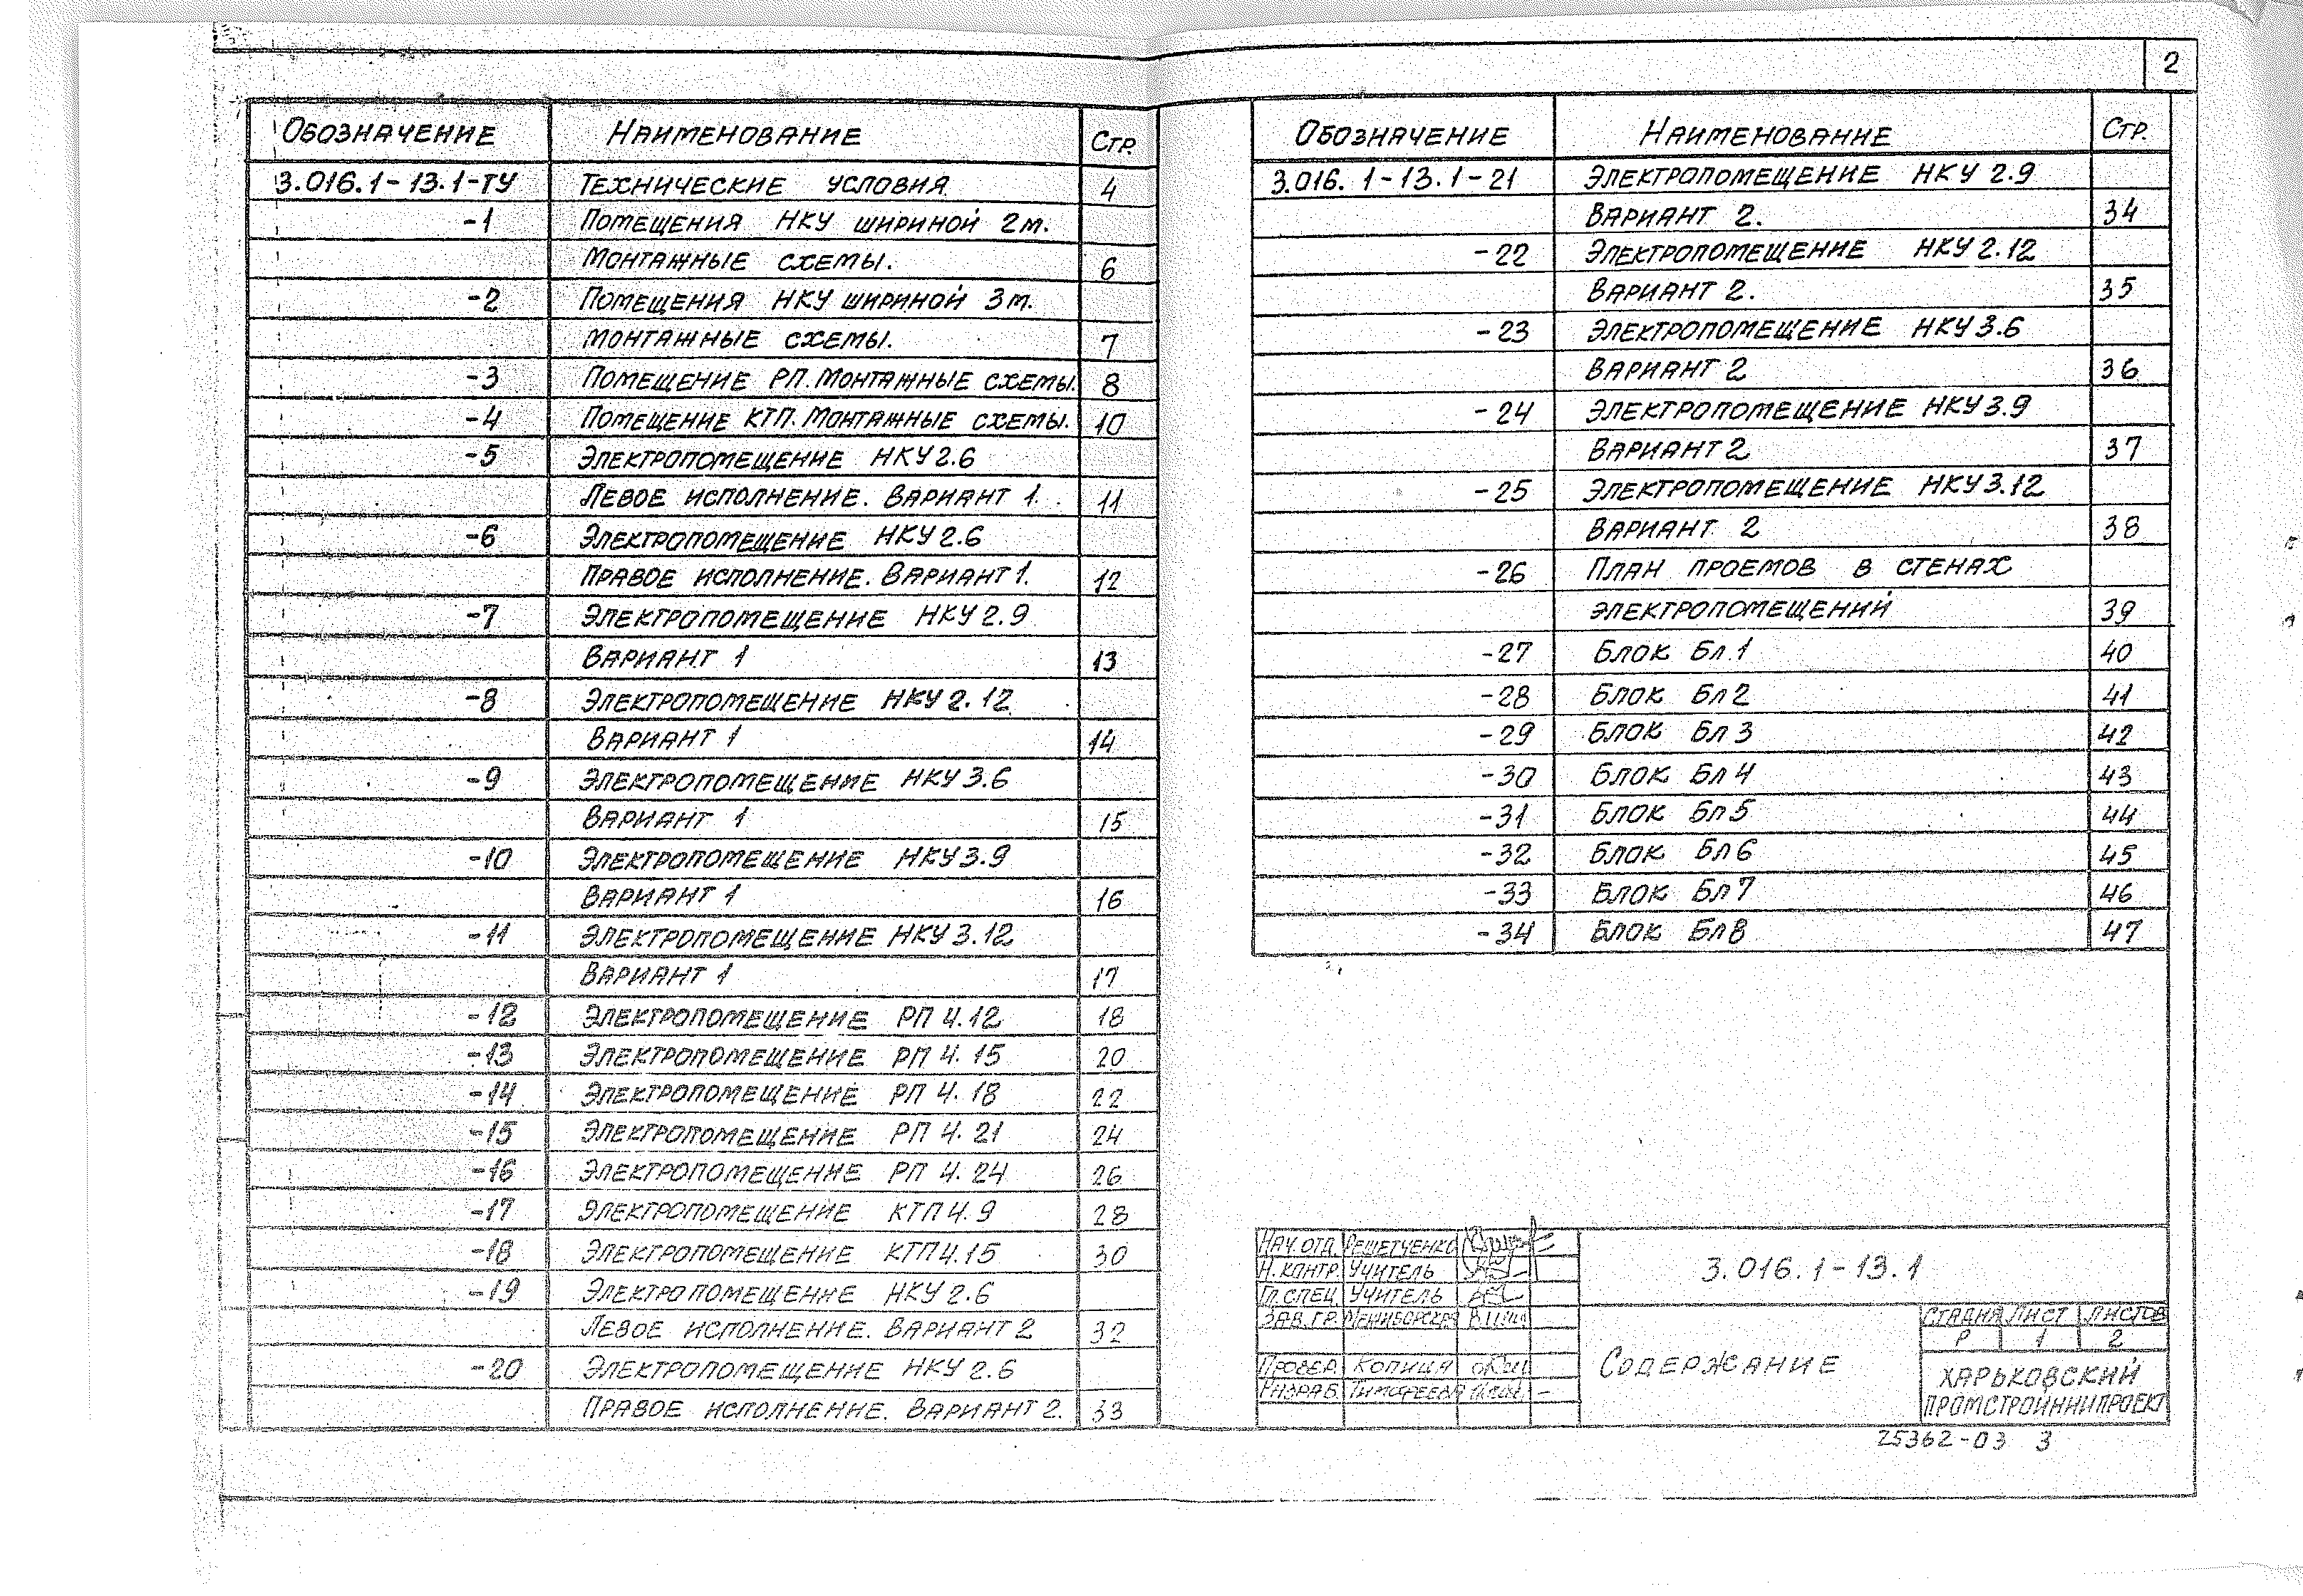 2
Обозначение Наименование Стр.
3.016.1-13.1-ТУ Технические условия 4
-1 Помещения НКУ шириной 2м.
Монтажные схемы. 6
-2 Помещения НКУ шириной 3м.
Монтажные схемы. 7
-3 Помещение РП. Монтажные схемы. 8
-4 Помещение КТП. Монтажные схемы. 10
-5 Электропомещение НКУ 2.6
Левое исполнение. Вариант 1. 11
-6 Электропомещение НКУ 2.6
Правое исполнение. Вариант 1. 12
-7 Электропомещение НКУ 2.9
Вариант 1 13
-8 Электропомещение НКУ 2.12
Вариант 1 14
-9 Электропомещение НКУ 3.6
Вариант 1 15
-10 Электропомещение НКУ 3.9
Вариант 1 16
-11 Электропомещение НКУ 3.12
Вариант 1 17
-12 Электропомещение РП 4.12 18
-13 Электропомещение РП 4.15 20
-14 Электропомещение РП 4.18 22
-15 Электропомещение РП 4.21 24
-16 Электропомещение РП 4.24 26
-17 Электропомещение КТП 4.9 28
-18 Электропомещение КТП 4.15 30
-19 Электропомещение НКУ 2.6
Левое исполнение. Вариант 2 32
-20 Электропомещение НКУ 2.6
Правое исполнение. Вариант 2. 33
Обозначение Наименование Стр.
3.016.1-13.1-21 Электропомещение НКУ 2.9
Вариант 2. 34
-22 Электропомещение НКУ 2.12
Вариант 2. 35
-23 Электропомещение НКУ 3.6
Вариант 2 36
-24 Электропомещение НКУ 3.9
Вариант 2 37
-25 Электропомещение НКУ 3.12
Вариант 2 38
-26 План проемов в стенах
электропомещений 39
-27 Блок Бл.1 40
-28 Блок Бл 2 41
-29 Блок Бл 3 42
-30 Блок Бл 4 43
-31 Блок Бл 5 44
-32 Блок Бл 6 45
-33 Блок Бл 7 46
-34 Блок Бл 8 47
Нач. отд. Решетченко
Н. контр. Учитель
Гл. спец. Учитель
Зав. гр.
Провер. Копица
Разраб. Тимофеева
3.016.1-13.1
Содержание
Стадия Лист Листов
Р 1 2
Харьковский
Промстройниипроект
25362-03 3